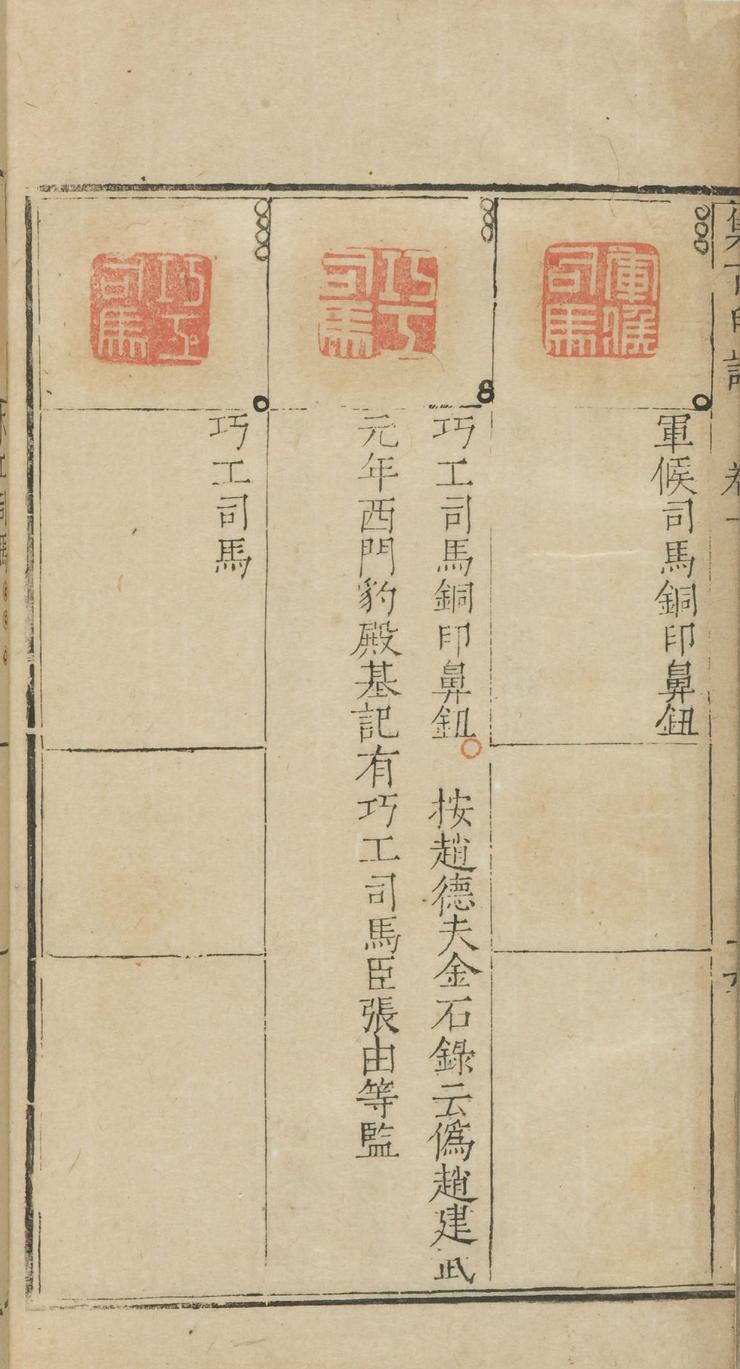 軍候司馬
軍候司馬銅印鼻鈕
巧工司馬
巧工司馬銅印鼻鈕 按趙德夫金石錄云偽趙建武
元年西門豹殿基記有巧工司馬臣張由等監
巧工司馬
巧工司馬